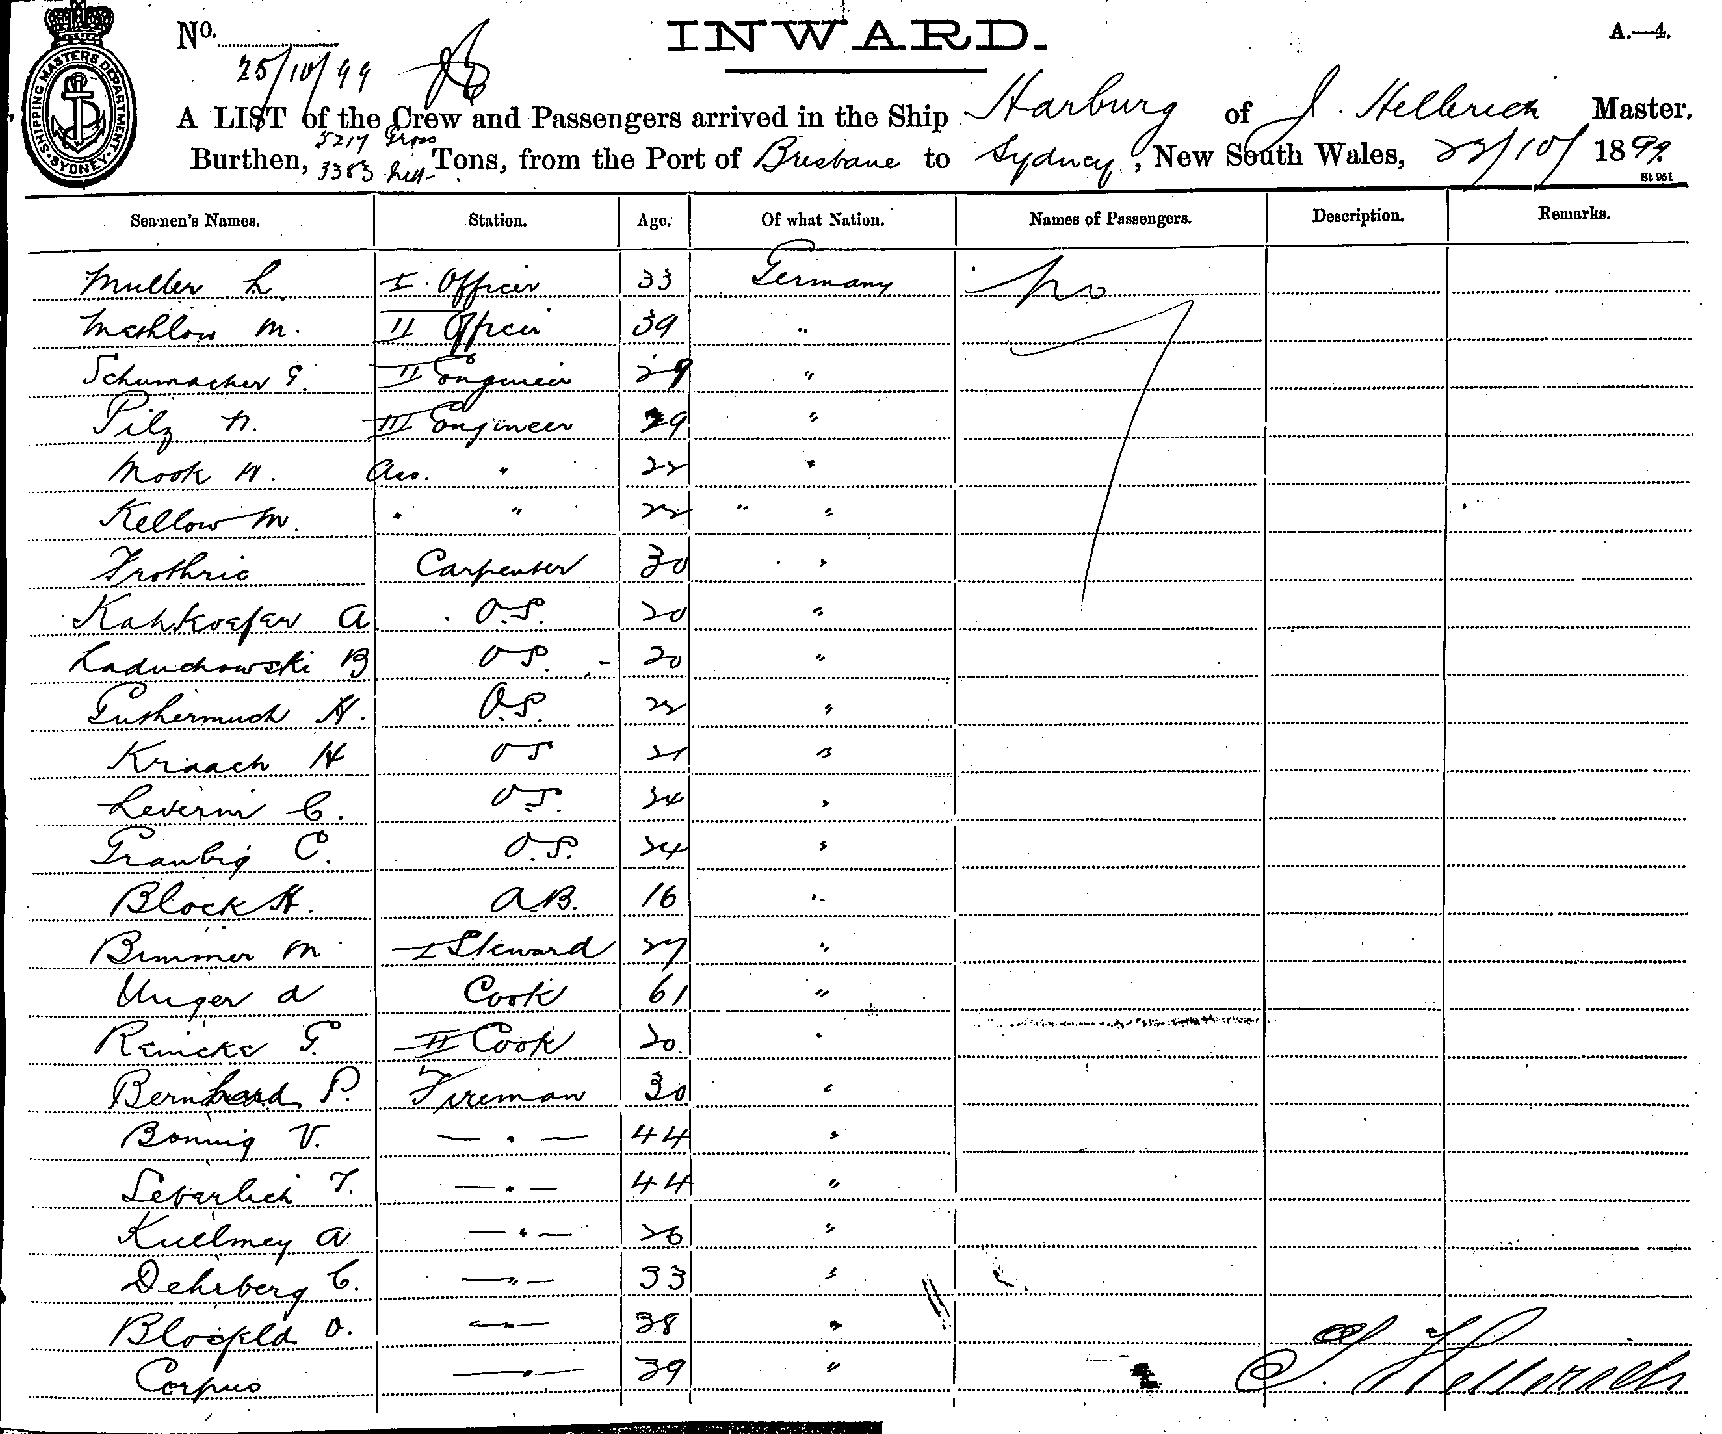 SHIPPING MASTERS DEPARTMENT. SYDNEY.
No.
25/10/99
INWARD.
A.—4.
A LIST of the Crew and Passengers arrived in the Ship Harburg of J. Hellerich Master,
Burthen, 5217 Gross 3383 Nett Tons, from the Port of Brisbane to Sydney, New South Wales, 22/10/ 1899
St 961
Seamen's Names. Station. Age. Of what Nation. Names of Passengers. Description. Remarks.
Muller L. I. Officer 33 Germany No
M. II Officer 39 "
Schumacher G. II Engineer 29 "
Pilz N. III Engineer 29 "
Mook H. Ass. " 22 "
Kellow M. " " 22 " "
Carpenter 30 "
Kahkoefer A O.S. 20 "
Laduchowski B O.S. 20 "
H. O.S. 22 "
Kraach H O S 21 "
Leverin C. O.S. 24 "
Graubig C. O.S. 24 "
Block H. A.B. 16 "
Bimmer M I Steward 27 "
Unger A Cook 61 "
Reincke G. II Cook 20 "
Bernhard P. Fireman 30 "
Bonnig V. — " — 44 "
Leberlich T. — " — 44 "
Kuelmey A — " — 26 "
Dehrberg C. — " — 33 "
O. — " — 38 "
Corpus — " — 39 "
J. Hellerich